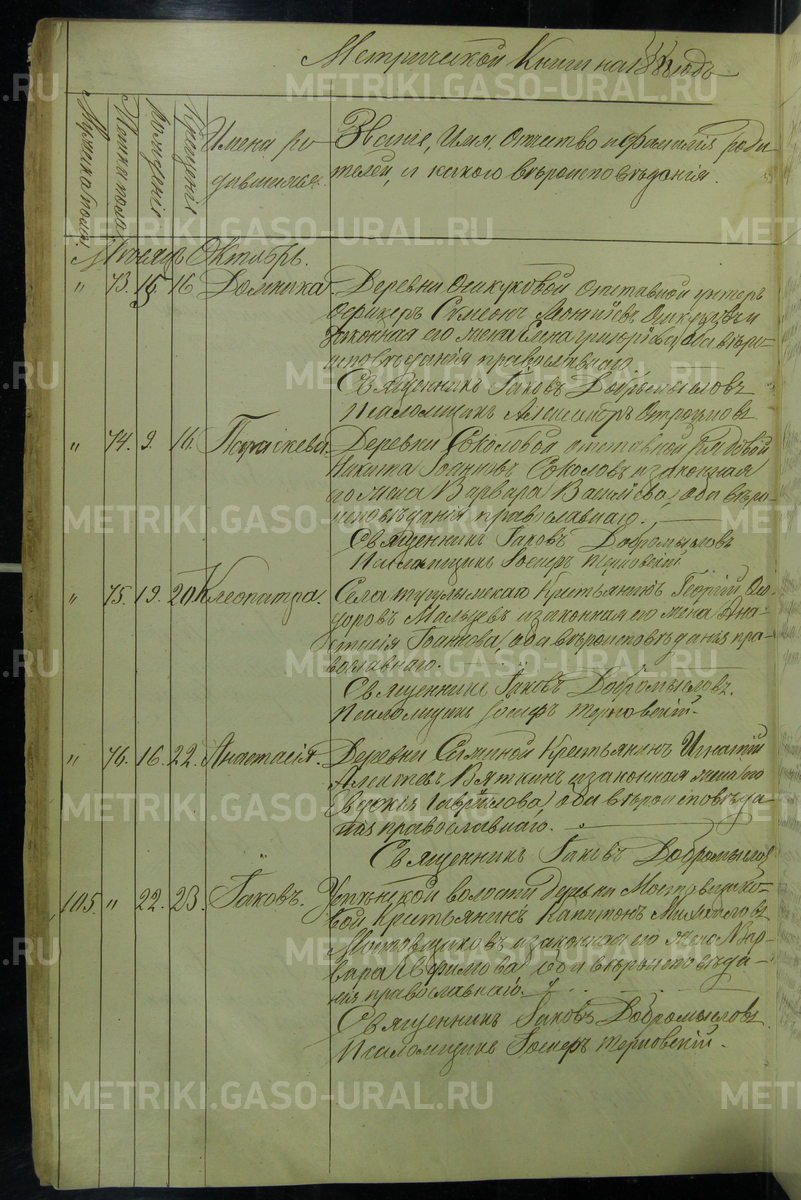 Метрической Книги на 1888 годъ
Мужеска пола
Женска пола
Рожденія
Крещенія
Имена ро-
дившихся.
Званіе, Имя, Отчество и фамилія роди-
телей, и какого вѣроисповѣданія.
Мѣсяцъ Октябрь.
" 73. 15 16 Домника. Деревни отставной унтеръ
офицеръ Симеонъ и
законная его жена Елена Григорьева, оба вѣро-
исповѣданія православнаго.
Священникъ Іаковъ Добромысловъ
Псаломщикъ Александръ
" 74. 9. 16. Параскева. Деревни Соколовой отставной рядовой
Никита Іоанновъ Соколовъ и законная
его жена Варвара Васильева, оба вѣро-
исповѣданія православнаго.
Священникъ Іаковъ Добромысловъ
Псаломщикъ Іосифъ Терновскій
" 75. 19. 20. Клеопатра. Села Тугулымскаго Крестьянинъ Георгій Ѳео-
доровъ Мальцевъ и законная его жена Ана-
стасія Іоаннова, оба вѣроисповѣданія пра-
вославнаго.
Священникъ Іаковъ Добромысловъ.
Псаломщикъ Іосифъ Терновскій.
" 76. 16. 22. Анастасія. Деревни Крестьянинъ Игнатій
Алексѣевъ Вяткинъ и законная жена его
Евдокія Гаврилова, оба вѣроисповѣда-
нія православнаго.
Священникъ Іаковъ Добромысловъ
105. " 22. 23. Іаковъ. волости деревни Мостовщико-
вой крестьянинъ Капитонъ Михайловъ
Мостовщиковъ и законная его жена Вар-
вара Ефимова, оба вѣроисповѣда-
нія православнаго.
Священникъ Іаковъ Добромысловъ.
Псаломщикъ Іосифъ Терновскій.
METRIKI.GASO-URAL.RU